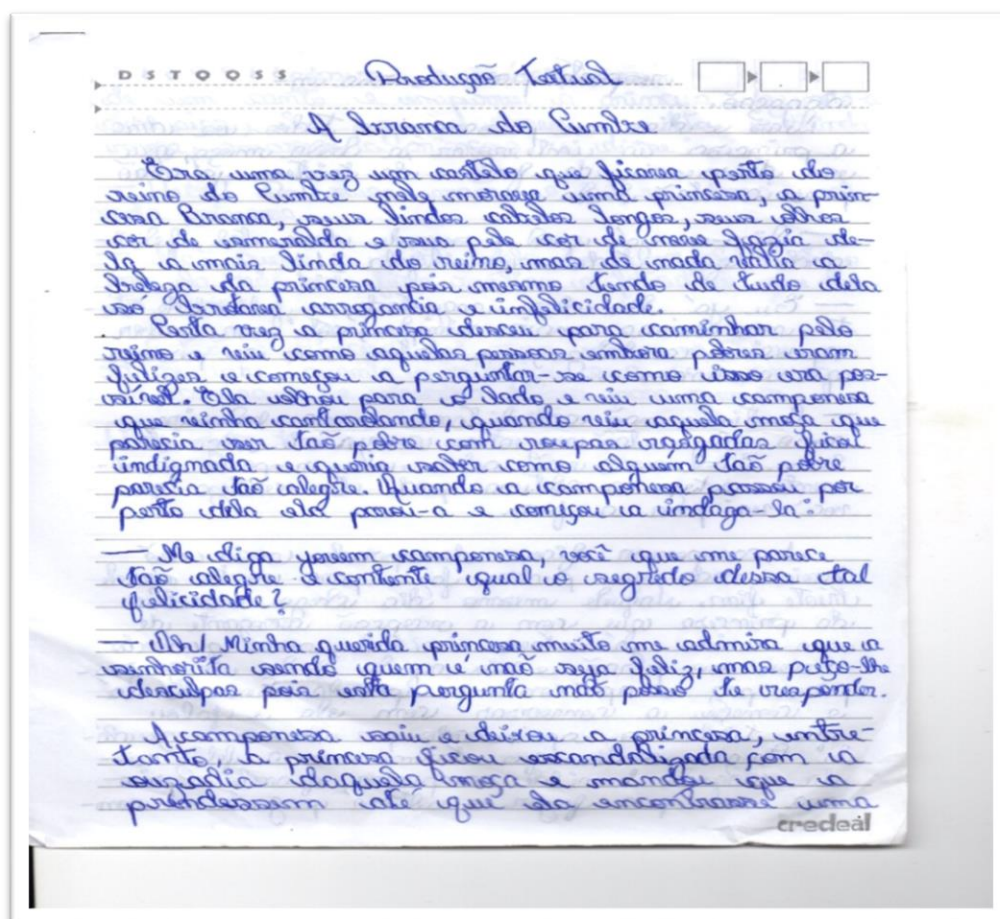 D S T Q Q S S
Produção Textual
A Branca do Cumbre
Era uma vez um castelo que ficava perto do
reino do Cumbre nele morava uma princesa, a prin-
cesa Branca, seus lindos cabelos longos, seus olhos
cor de esmeralda e sua pele cor de neve fazia de-
la a mais linda do reino, mas de nada valia a
beleza da princesa pois mesmo tendo de tudo dela
só brotava arrogancia e infelicidade.
Certa vez a princesa desceu para caminhar pelo
reino e viu como aquelas pessoas embora pobres eram
felizes e começou a perguntar-se como isso era pos-
sível. Ela olhou para o lado e viu uma camponesa
que vinha cantarolando, quando viu aquela moça que
parecia ser tão pobre com roupas rasgadas ficou
indignada e queria saber como alguém tão pobre
parecia tão alegre. Quando a camponesa passou por
perto dela ela parou-a e começou a indaga-la:
— Me diga jovem camponesa, você que me parece
tão alegre e contente qual o segredo dessa tal
felicidade?
— Oh! Minha querida princesa muito me admira que a
senhorita sendo quem é não seja feliz, mas peço-lhe
desculpas pois esta pergunta não posso te responder.
A camponesa saiu e deixou a princesa, entre-
tanto, a princesa ficou escandalizada com a
ousadia daquela moça e mandou que a
prendessem até que ela encontrasse uma
credeal